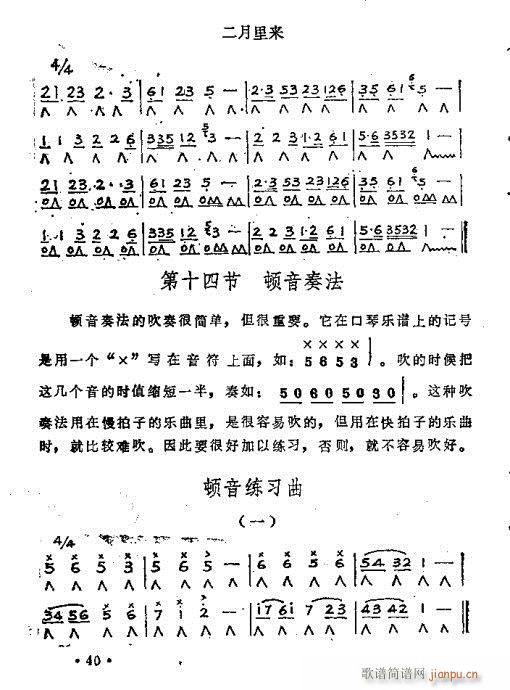 二月里来
4/4
21 23 2· 3 | 61 23 5 — | 2·3 53 23 126 | 35 61 5 — |
1 1 3 2 2 6 | 335 12 3 — | 2·2 3 1·2 61 | 5·6 3532 1 — |
21 23 2· 3 | 61 23 5 — | 2·3 53 23 126 | 35 61 5 — |
1·1 3 2 2 6 | 335 12 3 — | 2·2 3 1·2 61 | 5·6 3532 1 — ‖
第十四节 顿音奏法
顿音奏法的吹奏很简单，但很重要。它在口琴乐谱上的记号
是用一个“×”写在音符上面，如：5 6 5 3 | 。吹的时候把
这几个音的时值缩短一半，奏如：50 60 50 30 | 。这种吹
奏法用在慢拍子的乐曲里，是很容易吹的，但用在快拍子的乐曲
时，就比较难吹。因此要很好加以练习，否则，就不容易吹好。
顿音练习曲
（一）
4/4
5 6 5 3 | 5 6 5 — | 6 5 6 5 | 54 32 1 — |
34 56 5 6 | 7 1 2 — | 17 61 7 23 | 43 42 1 — ‖
·40·
歌谱简谱网
jianpu.cn